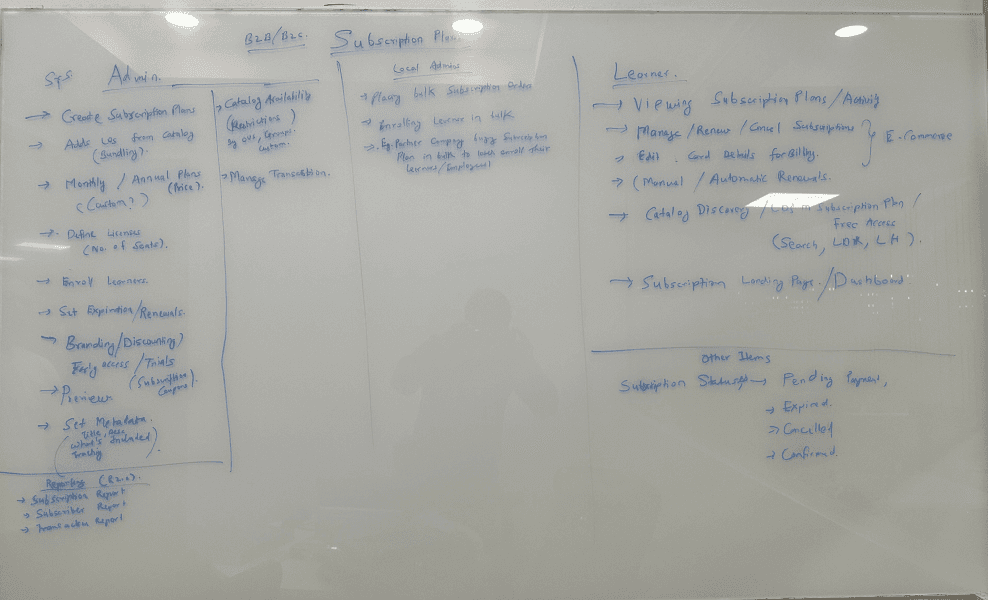 B2B/B2C. Subscription Plan
Sys Admin.
→ Create Subscription Plans
→ Adds from Catalog
(Bundling).
→ Monthly / Annual Plans
(Price).
(Custom?)
→ Define Licenses
(No. of Seats).
→ Enroll Learners.
→ Set Expiration/Renewals.
→ Branding/Discounting)
Early access /Trials
(Subscription
Coupons).
→ Preview
→ Set Metadata.
Title,
What's Included
Reporting (B2C).
→ Subscription Report
→ Subscriber Report
→ Transaction Report
→ Catalog Availability
(Restrictions)
by Learner
Custom.
→ Manage Transaction.
Local Admins
→ Placing bulk Subscription Orders
→ Enrolling Learner in bulk
→ Eg. Partner Company buys Subscription
Plan in bulk to enroll their
Learners/Employees)
Learner.
→ Viewing Subscription Plans/Activity
→ Manage/Renew/Cancel Subscriptions } E-Commerce
→ Edit Card Details for Billing.
→ (Manual / Automatic Renewals.
→ Catalog Discovery / in Subscription Plan /
Free Access
(Search, LH).
→ Subscription Landing Page./Dashboard.
Other Items
Subscription Status → Pending Payment,
→ Expired.
→ Cancelled
→ Confirmed.